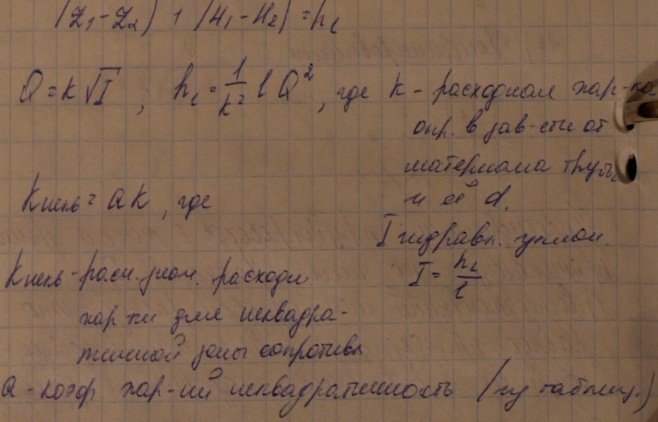 (Z₁-Z₂) + (H₁-H₂) = h_l
Q = K√I , h_l = 1/K² l Q² , где K - расходная хар-ка
опр. в зав-сти от
материала трубы
и её d.
Kнекв = aK , где
I гидравл. уклон.
I = h_l/l
Kнекв - расч. знач. расходн
хар-ки для неквадра-
тичной зоны сопротивл
a - коэф хар-ий неквадратичность (из таблиц.)